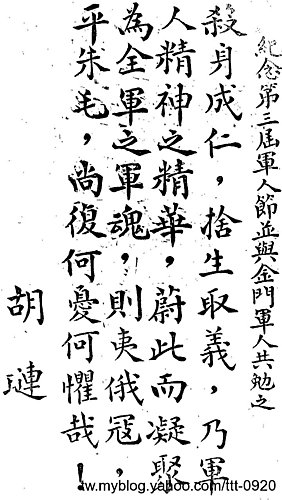 紀念第三屆軍人節並與金門軍人共勉之
殺身成仁，捨生取義，乃軍
人精神之精華，蔚此而凝聚
為全軍之軍魂，則夷俄寇，
平朱毛，尚復何憂何懼哉！
胡璉
tw.myblog.yahoo.com/ttt-0920